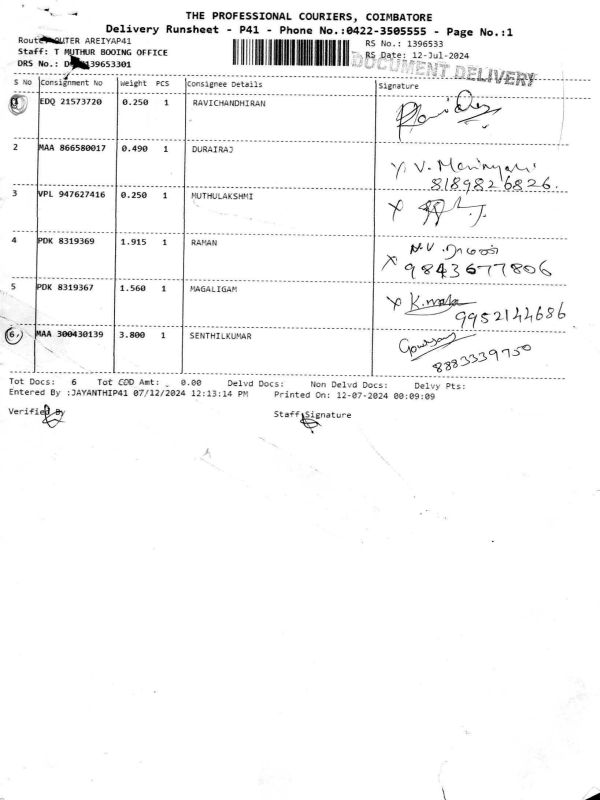 THE PROFESSIONAL COURIERS, COIMBATORE
Delivery Runsheet - P41 - Phone No.:0422-3505555 - Page No.:1
Route: OUTER AREIYAP41
RS No.: 1396533
Staff: T MUTHUR BOOING OFFICE
RS Date: 12-Jul-2024
DRS No.: 139653301
DOCUMENT DELIVERY
S No Consignment No Weight PCS Consignee Details Signature
EDQ 21573720 0.250 1 RAVICHANDHIRAN
2 MAA 866580017 0.490 1 DURAIRAJ
8189826826.
3 VPL 947627416 0.250 1 MUTHULAKSHMI
4 PDK 8319369 1.915 1 RAMAN
9843677806
5 PDK 8319367 1.560 1 MAGALIGAM
X K.mala
9952144686
6 MAA 300430139 3.800 1 SENTHILKUMAR
8883339750
Tot Docs: 6 Tot COD Amt: 0.00 Delvd Docs: Non Delvd Docs: Delvy Pts:
Entered By :JAYANTHIP41 07/12/2024 12:13:14 PM Printed On: 12-07-2024 00:09:09
Verified By Staff Signature